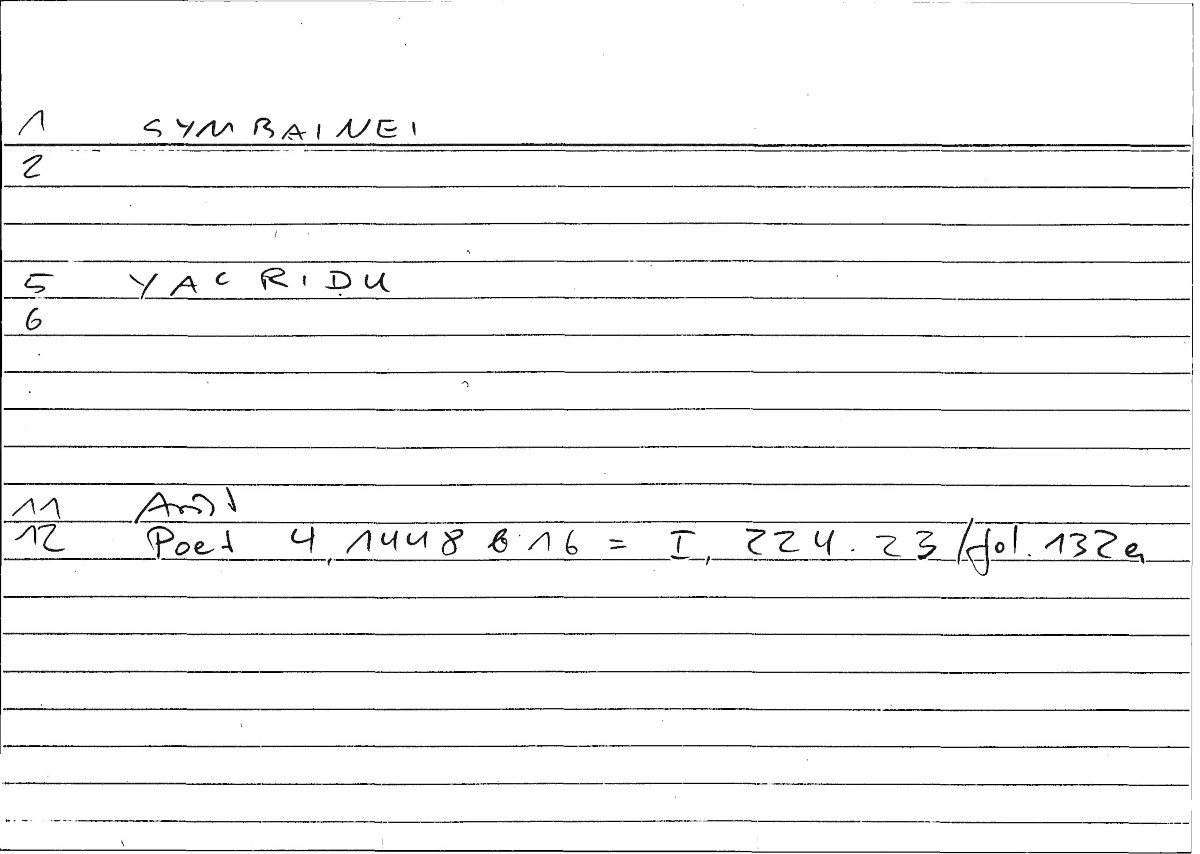 1 SYMBAINEI
2
5 YACRIḌU
6
11 Arist
12 Poet 4, 1448 b 16 = I, 224.23/fol. 132a